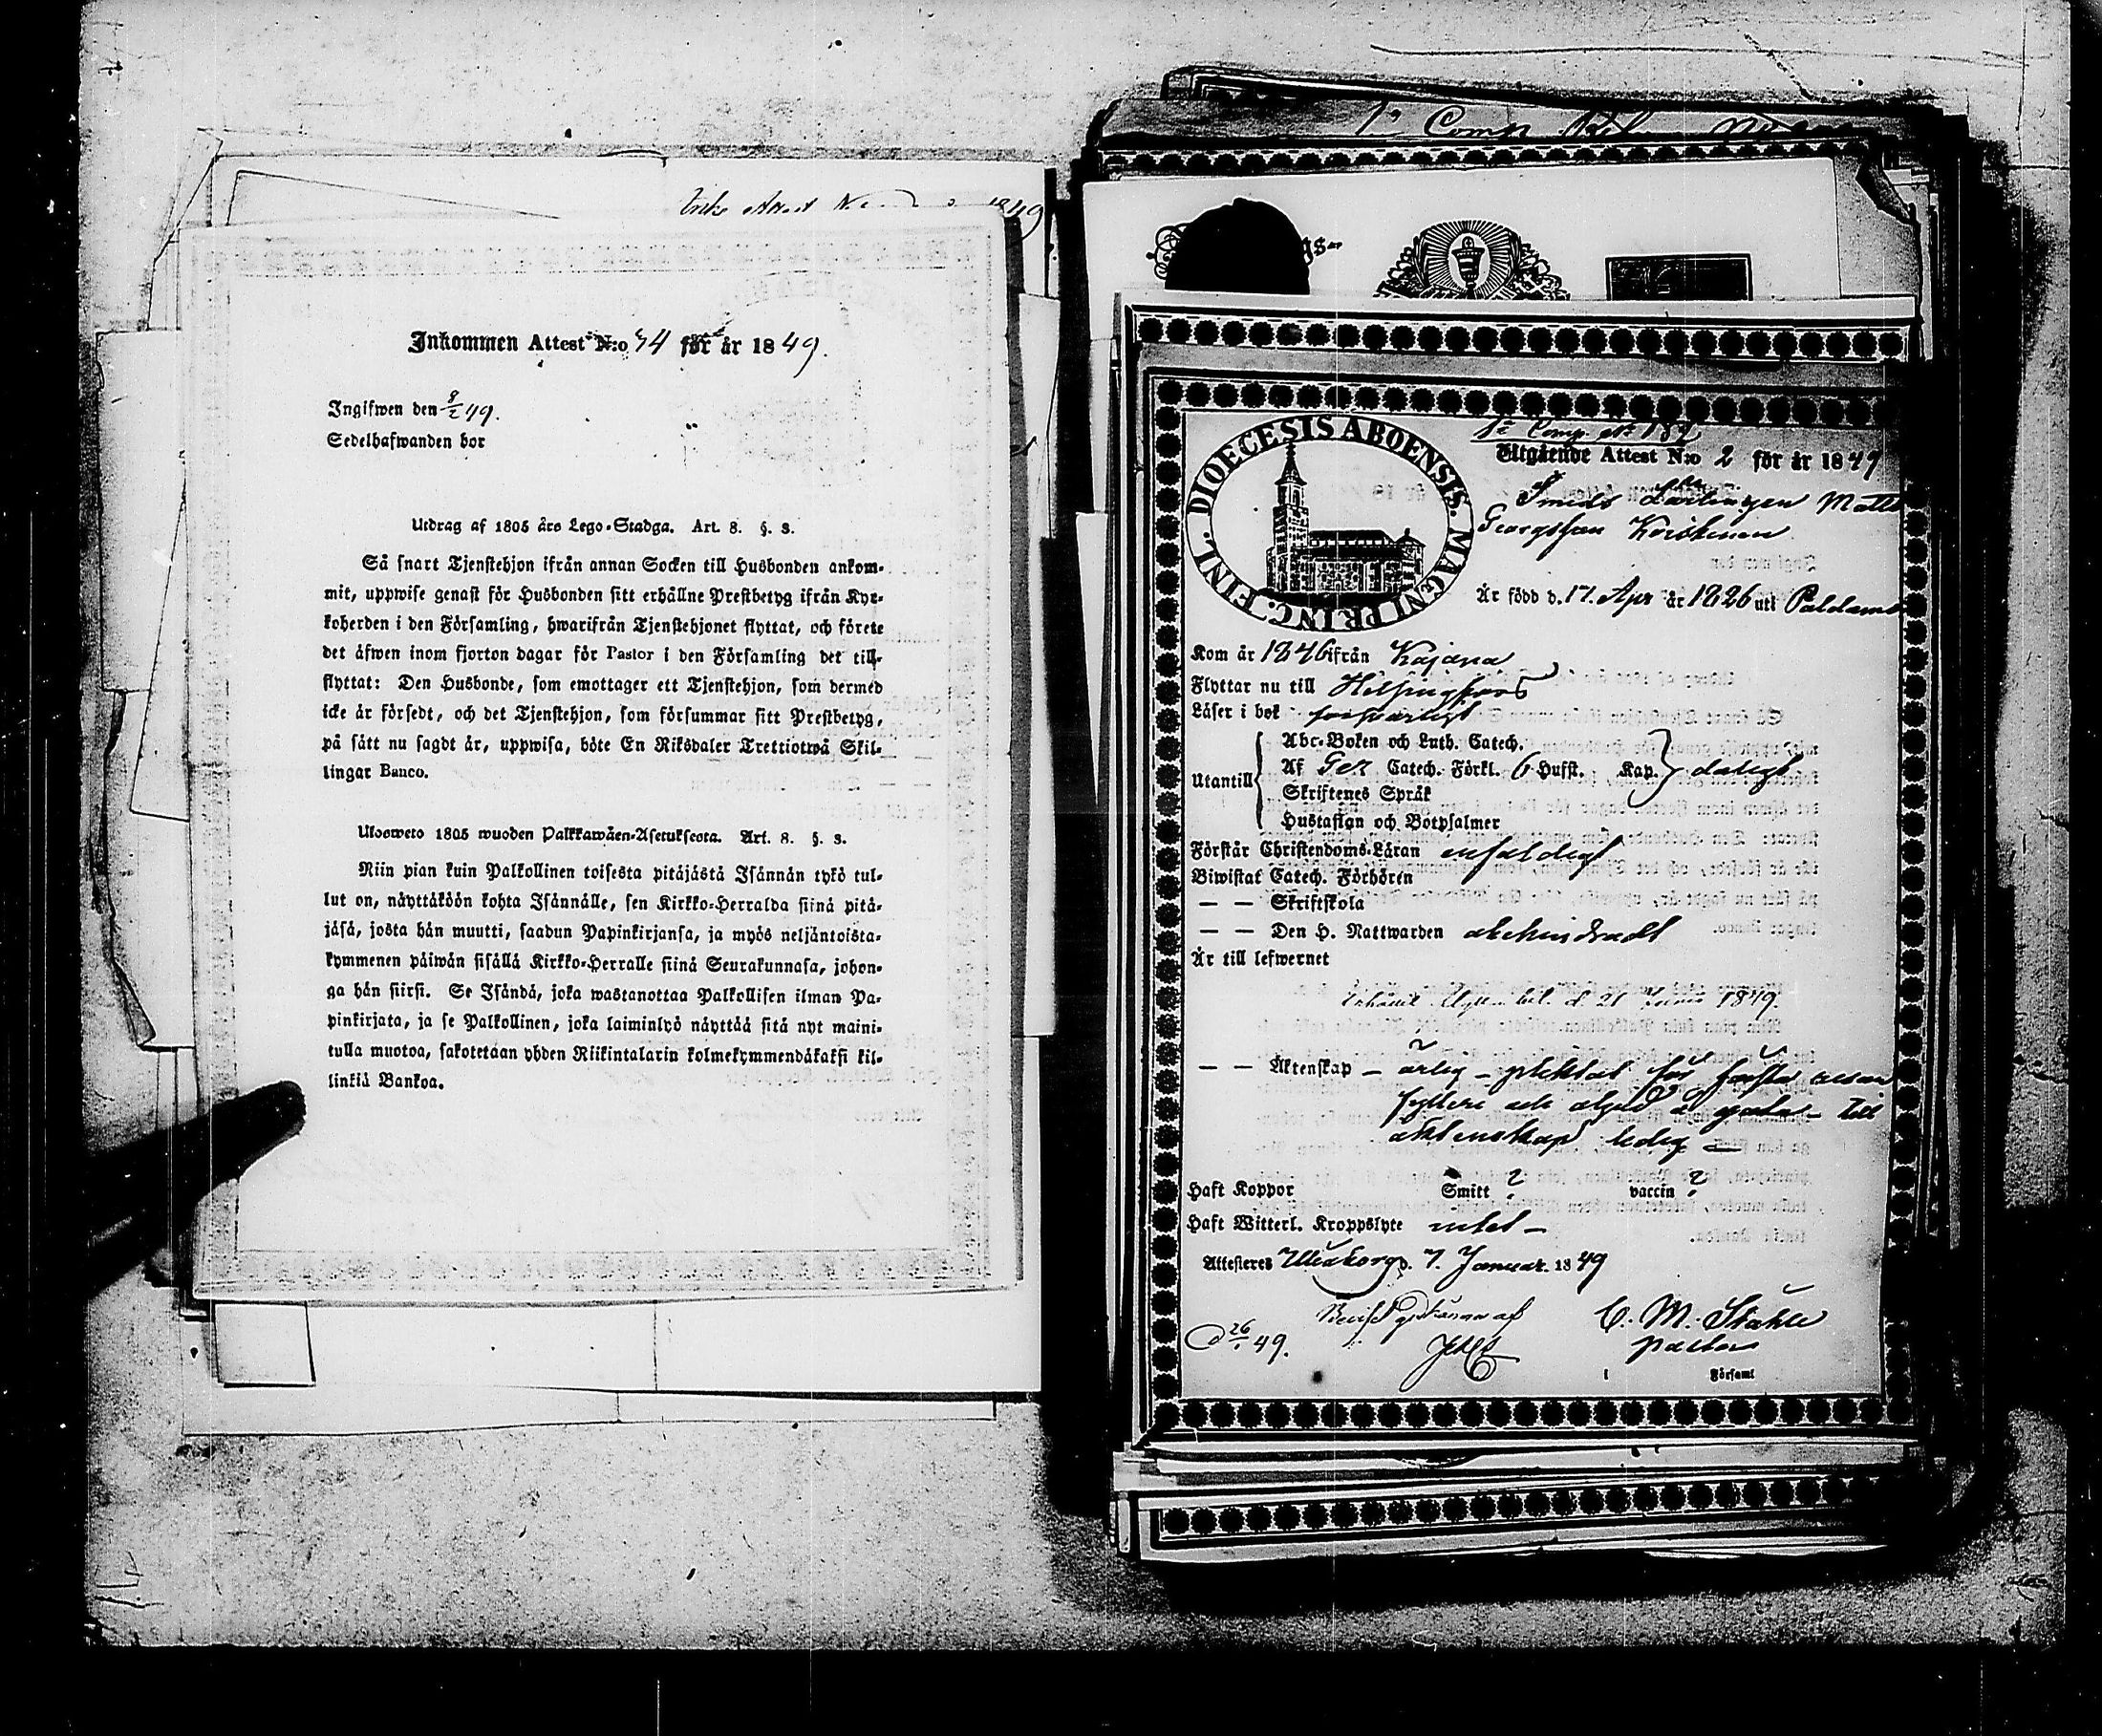 1849
Inkommen Attest N:o 44 för år 1849.
Ingifwen den 8/2 49.
Sedelhafwanden bor
Utdrag af 1805 års Lego-Stadga. Art. 8. §. 3.
Så snart Tjenstehjon ifrån annan Socken till Husbonden ankom-
mit, uppwise genast för Husbonden sitt erhållne Prestbetyg ifrån Kyr-
koherden i den Församling, hwarifrån Tjenstehjonet flyttat, och förete
det äfwen inom fjorton dagar för Pastor i den Församling det till-
flyttat: Den Husbonde, som emottager ett Tjenstehjon, som dermed
icke är försedt, och det Tjenstehjon, som försummar sitt Prestbetyg,
på sätt nu sagdt är, uppwisa, böte En Riksdaler Trettiotwå Skil-
lingar Banco.
Ulosweto 1805 wuoden Palkkawäen-Asetuksesta. Art. 8. §. 3.
Niin pian kuin Palkollinen toisesta pitäjästä Isännän tykö tul-
lut on, näyttäköön kohta Isännälle, sen Kirkko-Herralda siinä pitä-
jäsä, josta hän muutti, saadun Papinkirjansa, ja myös neljäntoista-
kymmenen päiwän sisällä Kirkko-Herralle siinä Seurakunnasa, johon-
ga hän siirsi. Se Isändä, joka wastanottaa Palkollisen ilman Pa-
pinkirjata, ja se Palkollinen, joka laiminlyö näyttää sitä nyt maini-
tulla muotoa, sakotetaan yhden Riikintalarin kolmekymmendäkaksi kil-
linkiä Bankoa.
1:a Comp
DIOECESIS ABOENSIS. MAGNI PRINC. FINL.
1:a Comp N:o 189
Utgående Attest N:o 2 för år 1849
Smeds Lärlingen Matts
Georgsson
Är född d. 17. Apr år 1826 uti Paldamo
Kom år 1846 ifrån Kajana
Flyttar nu till Helsingfors
Läser i bok försvarligt
Abc-Boken och Luth. Catech.
Utantill Af Catech. Förkl. 6 Hufst. Kap. dåligt
Skriftenes Språk
Hustaflan och Botpsalmer
Förstår Christendoms-Läran enfaldigt
Biwistat Catech. Förhören
— — Skriftskola
— — Den H. Nattwarden obehindradt
Är till lefwernet
d 21 Junii 1849.
— — Äktenskap – ärlig – pliktat för första resan
fylleri och till
äktenskap ledig –
Haft Koppor Smitt ? vaccin ?
Haft Witterl. Kroppslyte intet –
Attesteras Uleåborg d. 7. Januar. 1849
af C. M. Ståhle
26/1 49. pastor
i Församl